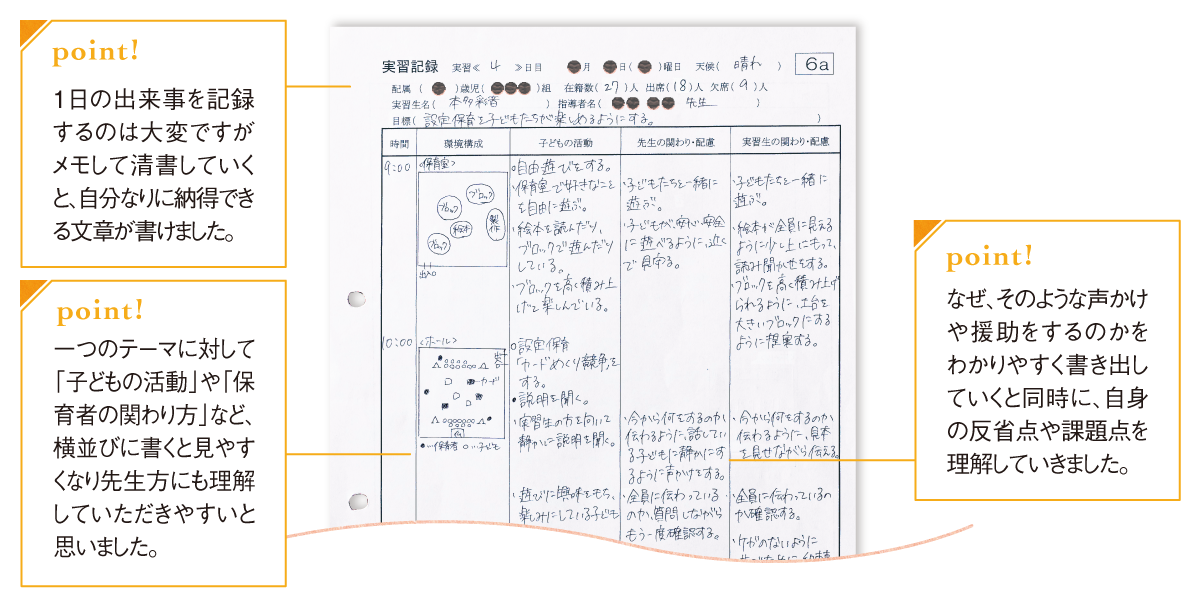 point!
1日の出来事を記録
するのは大変ですが
メモして清書していく
と、自分なりに納得でき
る文章が書けました。
point!
一つのテーマに対して
「子どもの活動」や「保
育者の関わり方」など、
横並びに書くと見やす
くなり先生方にも理解
していただきやすいと
思いました。
実習記録 実習≪ 4 ≫日目 月 日( )曜日 天候( 晴れ ) 6a
配属 ( )歳児( )組 在籍数(27)人 出席(18)人 欠席(9)人
実習生名( 本多彩音 ) 指導者名( 先生 )
目標( 設定保育を子どもたちが楽しめるようにする。 )
時間 環境構成 子どもの活動 先生の関わり・配慮 実習生の関わり・配慮
9:00
<保育室>
ブロック
ブロック
絵本
製作
ブロック
出入口
○自由遊びをする。
・保育室で好きなこと
を自由に遊ぶ。
・絵本を読んだり、
ブロックで遊んだり
している。
・ブロックを高く積み上
げて楽しんでいる。
・子どもたちと一緒に
遊ぶ。
・子どもが、安心、安全
に遊べるように、近く
で見守る。
・子どもたちと一緒に
遊ぶ。
・絵本が全員に見える
ように少し上にもって、
読み聞かせをする。
・ブロックを高く積み上げ
られるように、土台を
大きいブロックにする
ように提案する。
10:00
<ホール>
カード
●…保育者 ○…子ども
○設定保育
「カードめくり競争」を
する。
●説明を聞く。
・実習生の方を向いて
静かに説明を聞く。
・遊びに興味をもち、
楽しみにしている子ども
・今から何をするのか
伝わるように、話してい
る子どもに静かにす
るように声かけをする。
・全員に伝わっている
のか、質問しながら
もう一度確認する。
・今から何をするのか
伝わるように、見本
を見せながら伝える。
・全員に伝わっているの
か確認する。
・ケガのないように
point!
なぜ、そのような声かけ
や援助をするのかを
わかりやすく書き出し
ていくと同時に、自身
の反省点や課題点を
理解していきました。